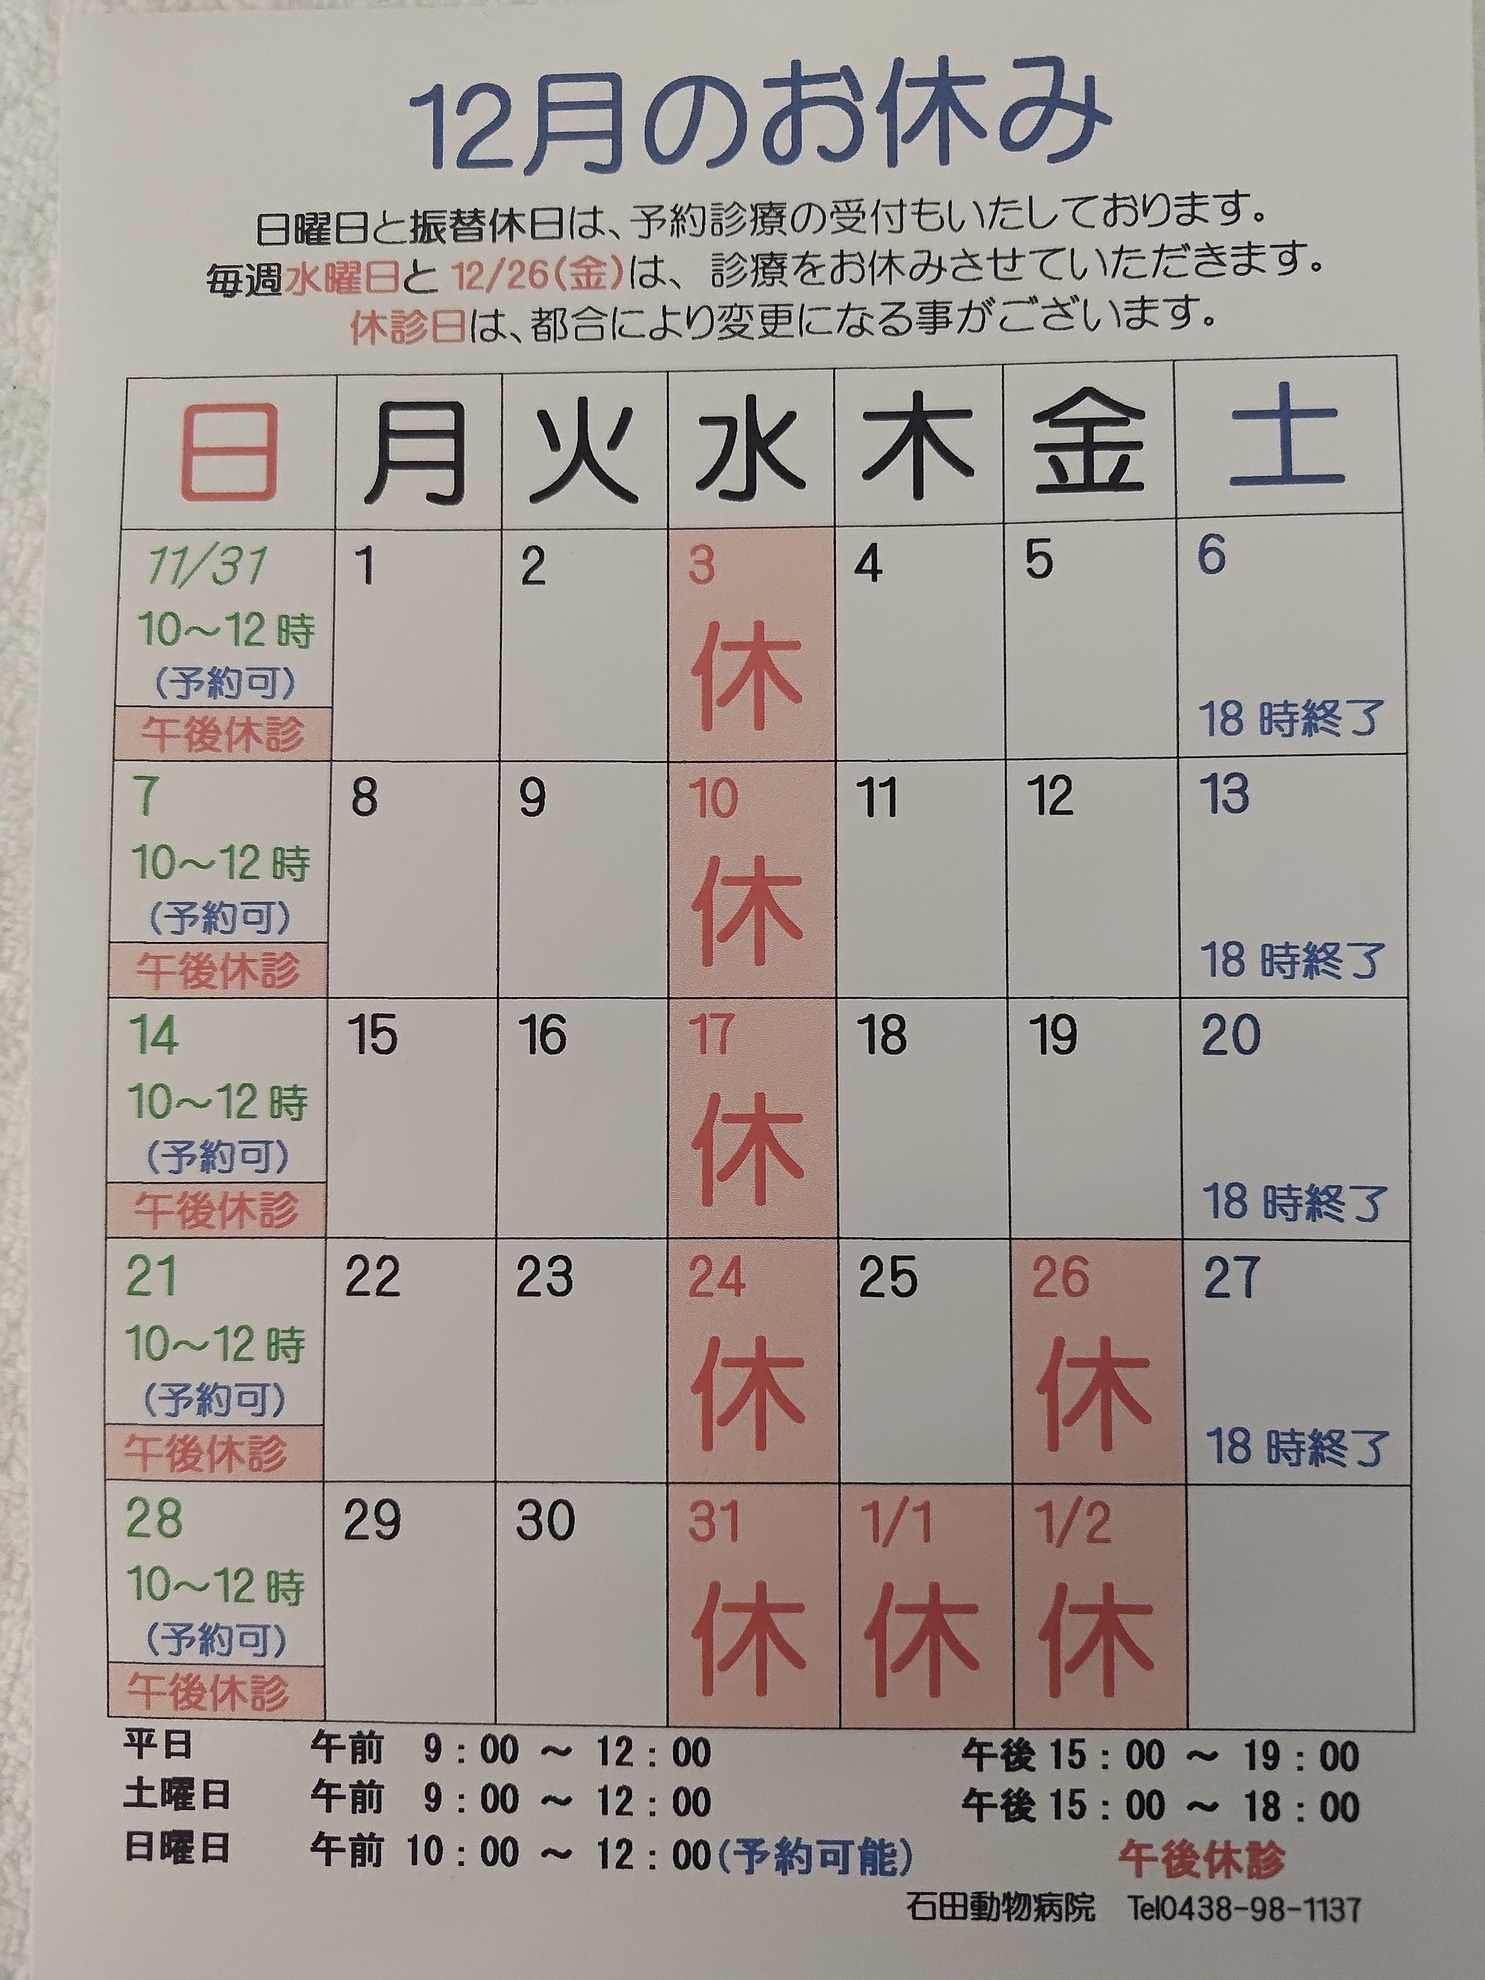 12月のお休み
日曜日と振替休日は、予約診療の受付もいたしております。
毎週水曜日と 12/26(金)は、診療をお休みさせていただきます。
休診日は、都合により変更になる事がございます。
日 月 火 水 木 金 土
11/31 1 2 3 4 5 6
10～12 時
(予約可) 休
午後休診 18 時終了
7 8 9 10 11 12 13
10～12 時
(予約可) 休
午後休診 18 時終了
14 15 16 17 18 19 20
10～12 時
(予約可) 休
午後休診 18 時終了
21 22 23 24 25 26 27
10～12 時
(予約可) 休 休
午後休診 18 時終了
28 29 30 31 1/1 1/2
10～12 時
(予約可) 休 休 休
午後休診
平日 午前 9：00 ～ 12：00 午後 15：00 ～ 19：00
土曜日 午前 9：00 ～ 12：00 午後 15：00 ～ 18：00
日曜日 午前 10：00 ～ 12：00(予約可能) 午後休診
石田動物病院 Tel0438-98-1137